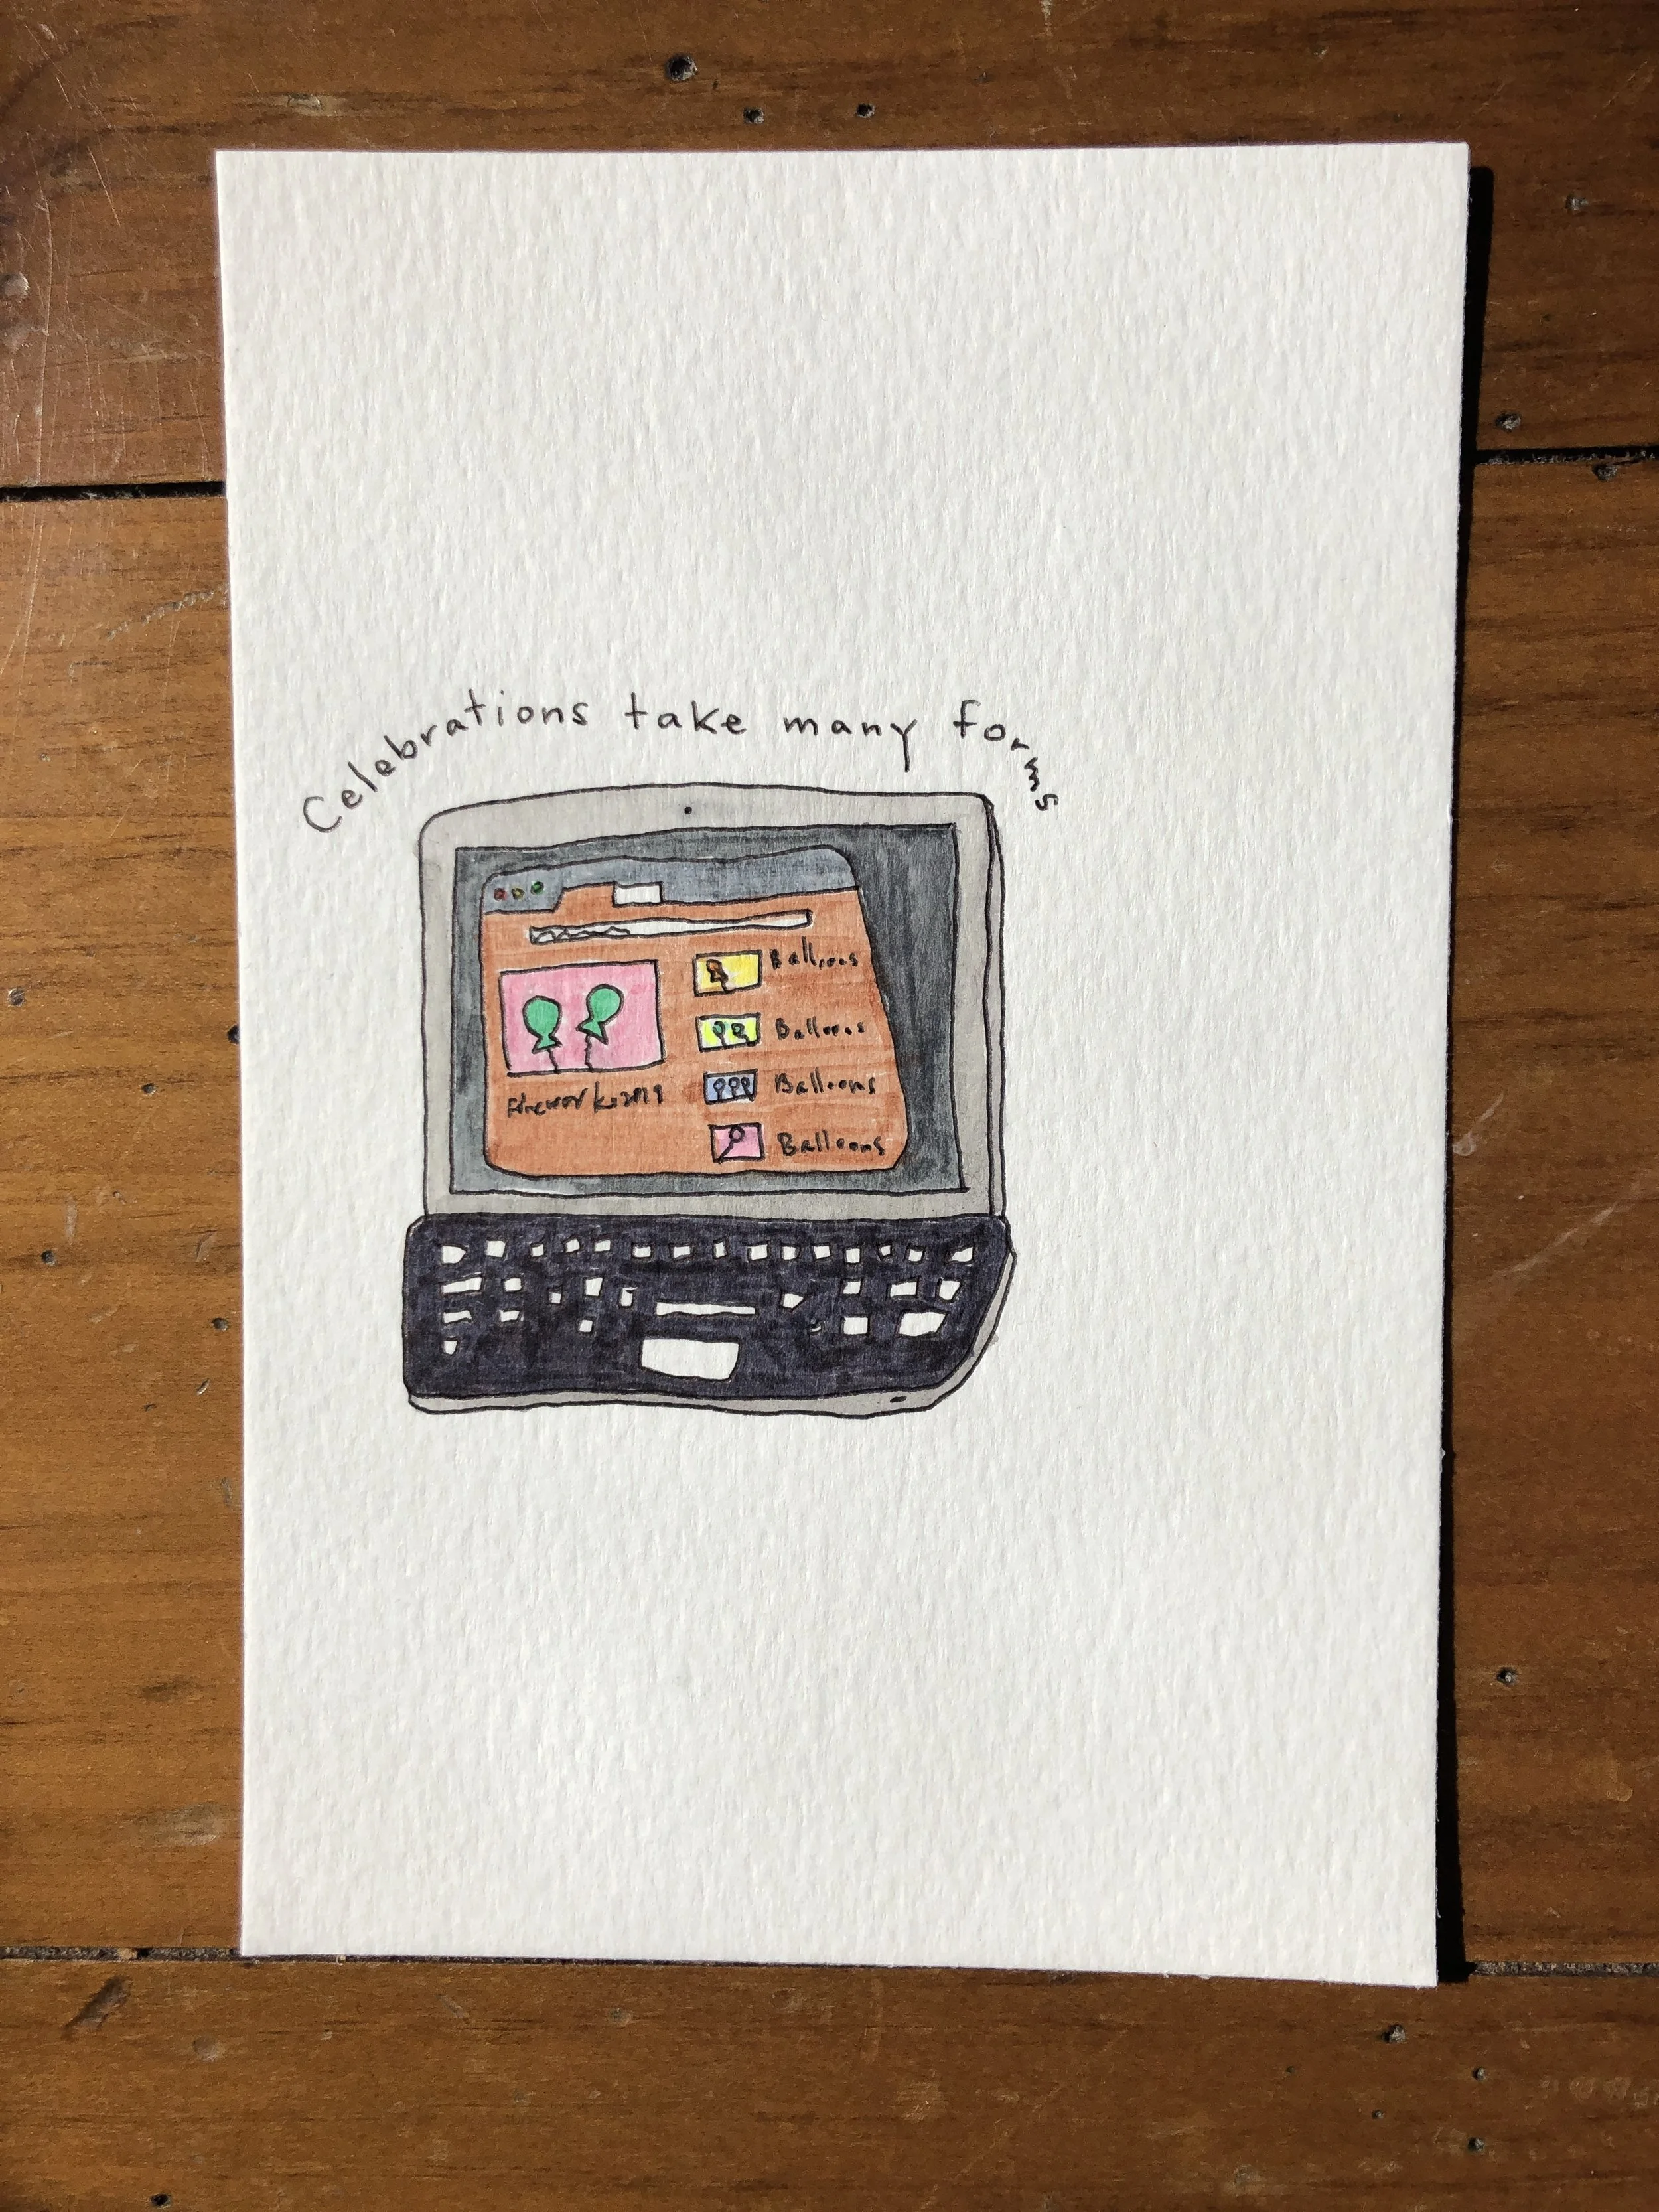 Celebrations take many forms
Balloons
Balloons
Fireworks2019
Balloons
Balloons